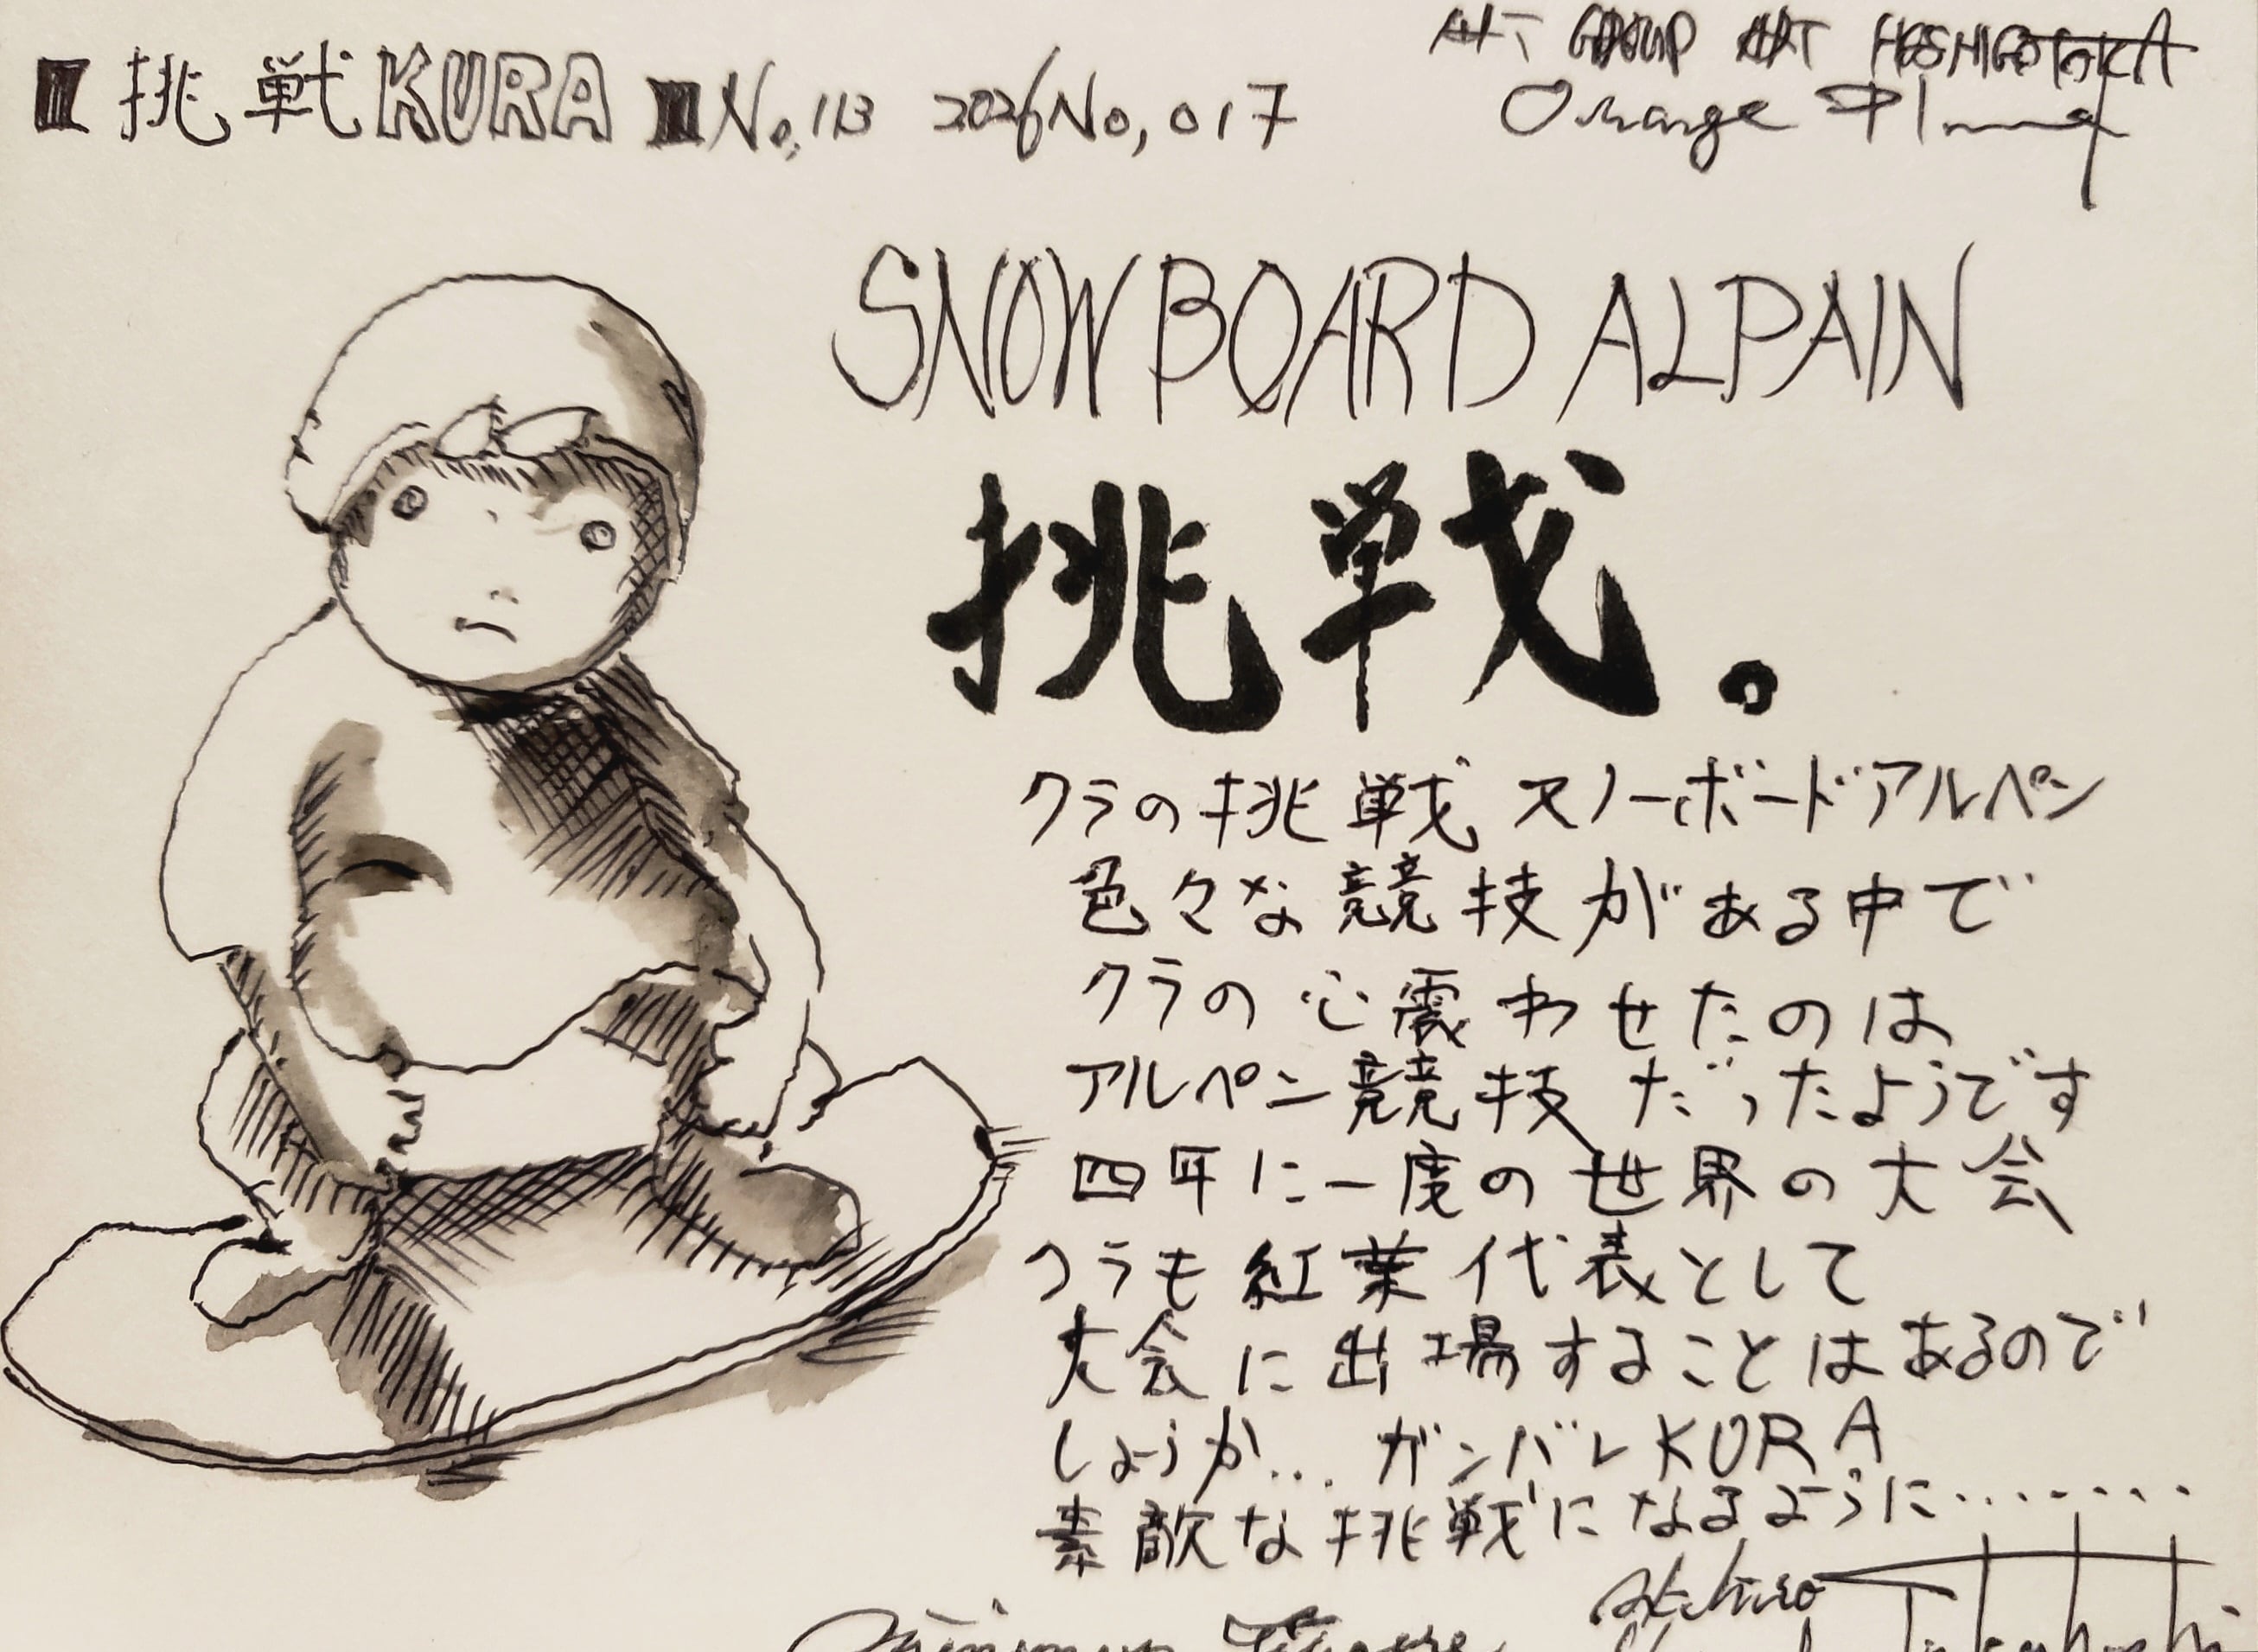 挑戦KURA No.113 2026No,017
Orange Planet
SNOWBOARD ALPAIN
挑戦。
クラの挑戦 スノーボードアルペン
色々な競技がある中で
クラの心震わせたのは
アルペン競技だったようです
四年に一度の世界の大会
クラも紅葉代表として
大会に出場することはあるので
しょうか... ガンバレKURA
素敵な挑戦になるように........